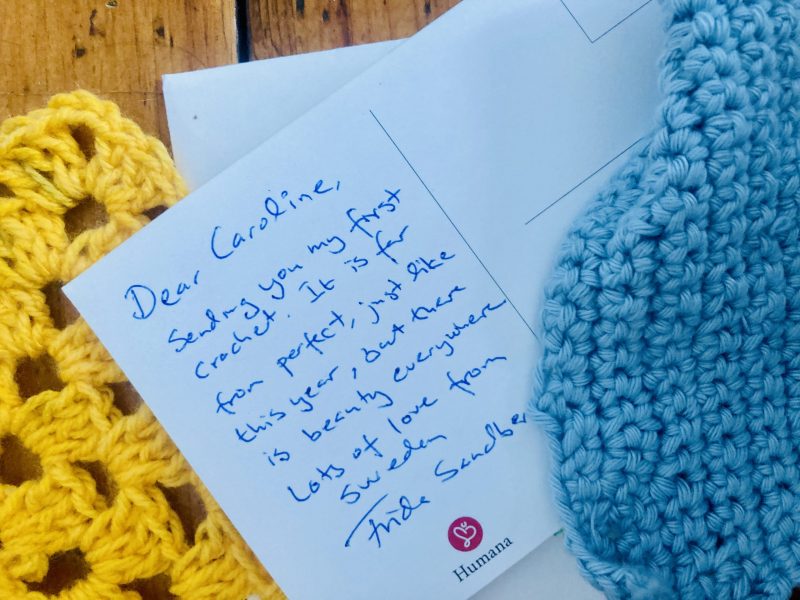 Dear Caroline,
Sending you my first
crochet. It is far
from perfect, just like
this year, but there
is beauty everywhere
Lots of love from
Sweden
Frida Sandber
Humana